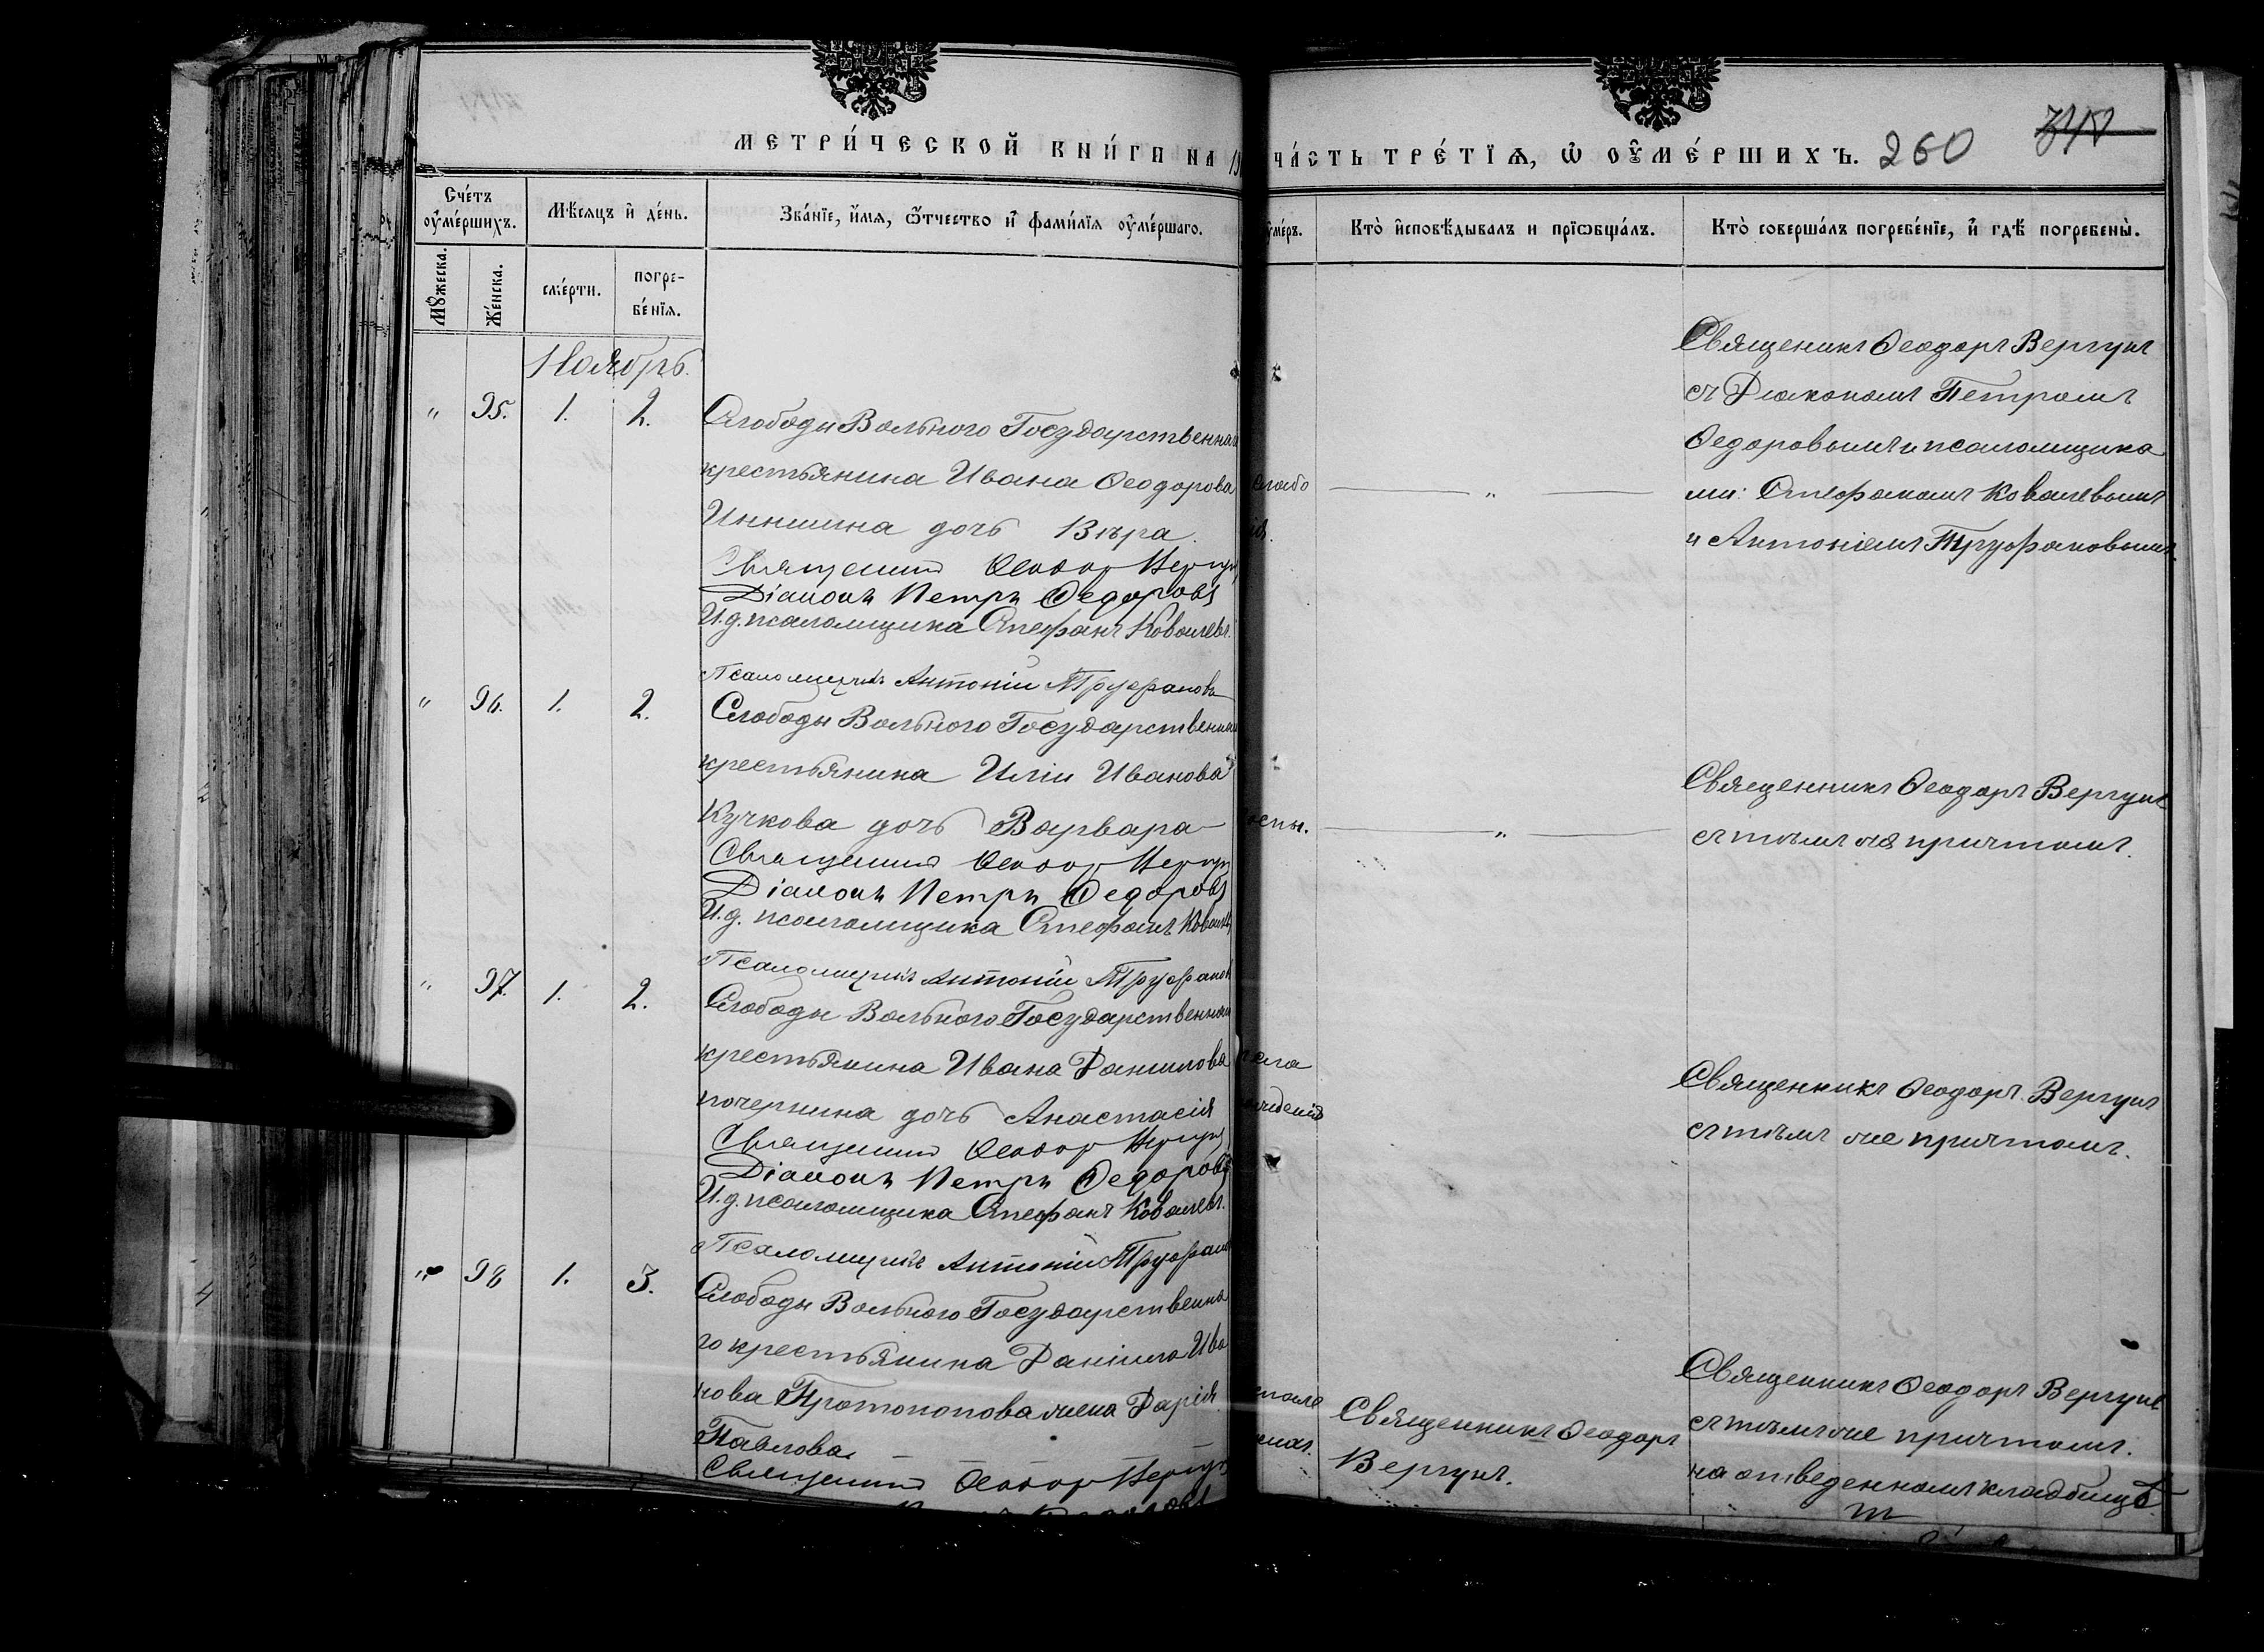 МЕТРИ́ЧЕСКОЙ КНИ́ГИ НА 19
ЧА́СТЬ ТРЕ́ТЇѦ, Ѡ҆ ОУ҆МЕ́РШИХЪ. 260
Сче́тъ оу҆ме́ршихъ.
Мѣ́сяцъ и҆ де́нь.
Зва́нїе, и҆́мя, ѻ҆́тчество и҆ фами́лїя оу҆ме́ршаго.
оу҆ме́ръ.
Кто̀ и҆сповѣ́дывалъ и прїѡбща́лъ.
Кто̀ соверша́лъ погребе́нїе, и҆ гдѣ̀ погребены̀.
Мꙋ́жеска.
Же́нска.
сме́рти.
погре-
бе́нїя.
Ноябрь.
" 95. 1. 2.
Слободы Вольного Государственнаго
крестьянина Ивана Ѳеодорова
дочь Вѣра.
Священникъ Ѳеодоръ Вергунъ
Діаконъ Петръ Ѳедоровъ
И.д. псаломщика Стефанъ Ковалевъ.
Псаломщикъ Антоній Труфановъ
слабо
"
Священникъ Ѳеодоръ Вергунъ
съ Діакономъ Петромъ
Ѳедоровымъ и псаломщика
ми: Стефаномъ Ковалевымъ
и Антоніемъ Труфановымъ
" 96. 1. 2.
Слободы Вольного Государственнаго
крестьянина Иліи Иванова
Кучкова дочь Варвара
Священникъ Ѳеодоръ Вергунъ
Діаконъ Петръ Ѳедоровъ
И.д. псаломщика Стефанъ Ковалевъ
Псаломщикъ Антоній Труфановъ
оспы.
"
Священникъ Ѳеодоръ Вергунъ
съ тѣмъ же причтомъ.
" 97. 1. 2.
Слободы Вольного Государственнаго
крестьянина Ивана Данилова
почернина дочь Анастасія
Священникъ Ѳеодоръ Вергунъ
Діаконъ Петръ Ѳедоровъ
И.д. псаломщика Стефанъ Ковалевъ.
Псаломщикъ Антоній Труфановъ
Священникъ Ѳеодоръ Вергунъ
съ тѣмъ же причтомъ.
" 98 1. 3.
Слободы Вольного Государственна
го крестьянина Даніила Ива
нова Протопопова жена Дарія
Павлова
Священникъ Ѳеодоръ Вергунъ
Священникъ Ѳеодоръ
Вергунъ.
Священникъ Ѳеодоръ Вергунъ
съ тѣмъ же причтомъ.
на отведенномъ кладбищѣ